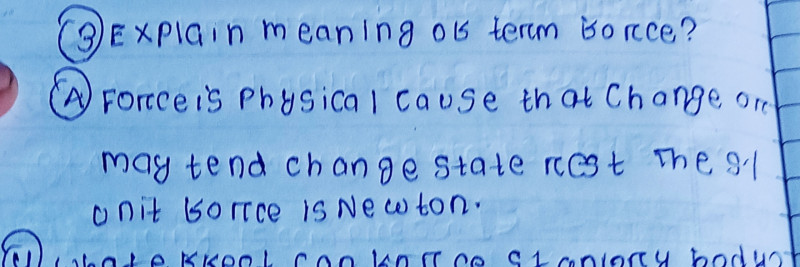 (3) Explain meaning of term force?
(A) Force is physical cause that change or
may tend change state rest The S.I
unit force is Newton.
can force body